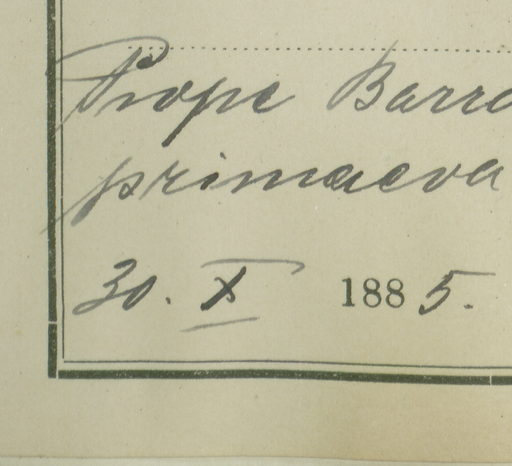 Prope Barra
primaeva
30. X 1885.